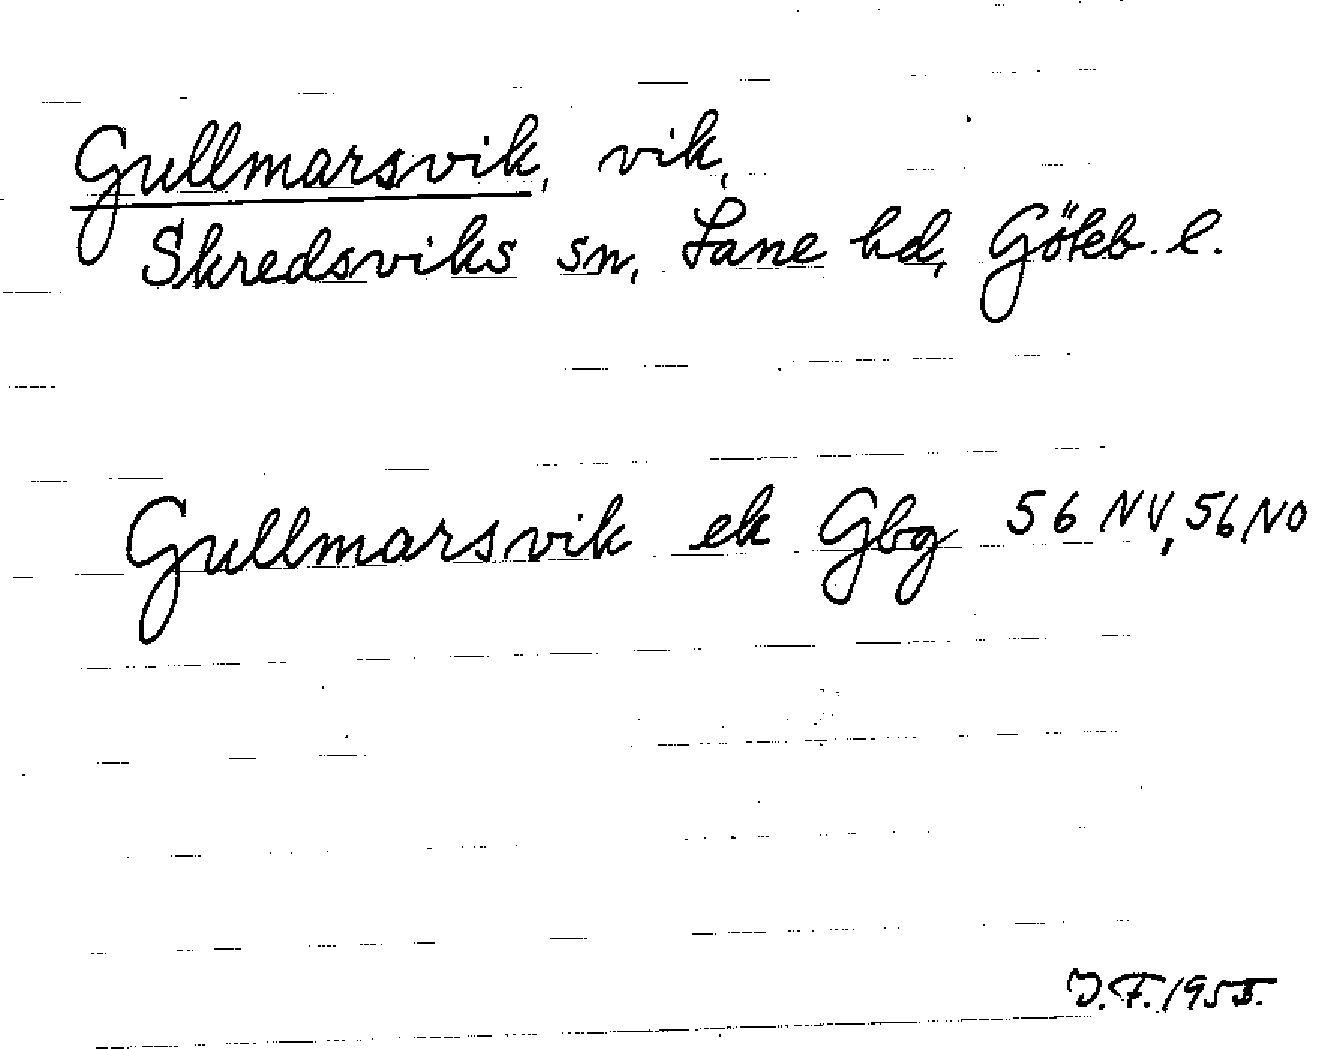 Gullmarsvik, vik,
Skredsviks sn, Lane hd, Göteb. l.
Gullmarsvik ek Gbg 56 NV, 56 NO
J.F. 1955.